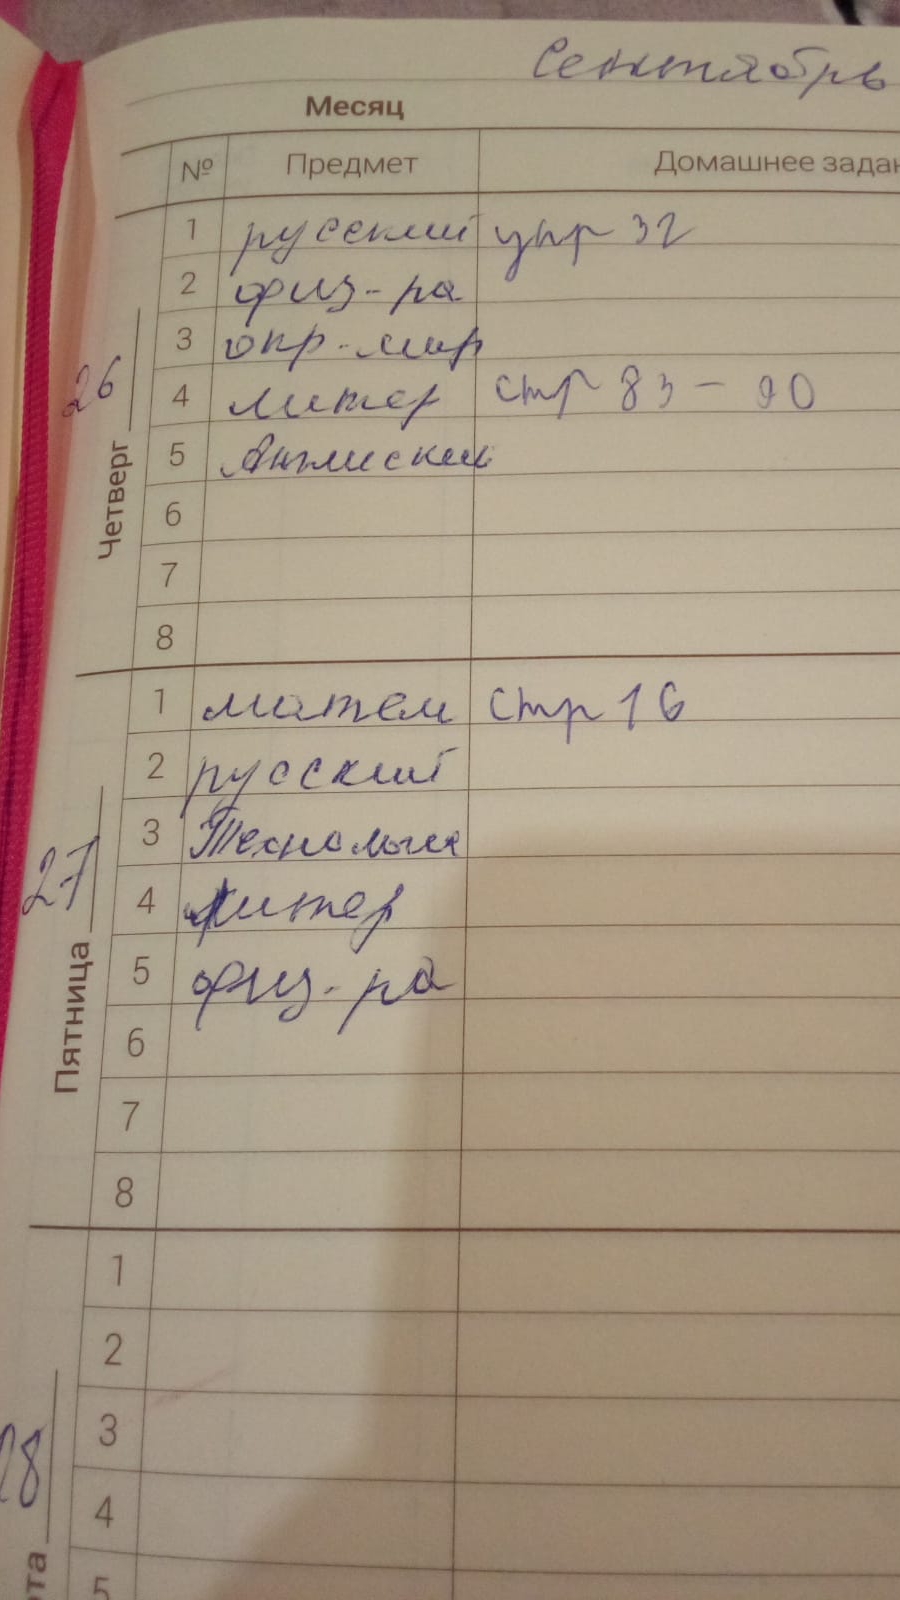 Сентябрь
Месяц
№ Предмет Домашнее задан
Четверг 26
1 русский упр 32
2 физ-ра
3 окр-мир
4 литер стр 83 - 90
5 Английский
6
7
8
Пятница 27
1 матем стр 16
2 русский
3 Технология
4 литер
5 физ-ра
6
7
8
ота 28
1
2
3
4
5